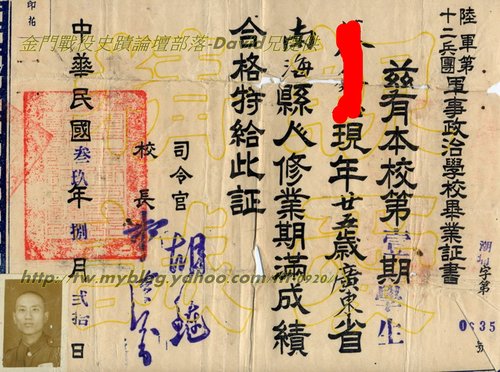 陸軍第十二兵團軍事政治學校畢業証書
潮規字第0635號
茲有本校第壹期學生
現年廿五歲廣東省
南海縣人修業期滿成績
合格特給此証
司令官 胡璉
校長
中華民國叁玖年捌月貳拾日
金門戰役史蹟論壇部落-David兄提供